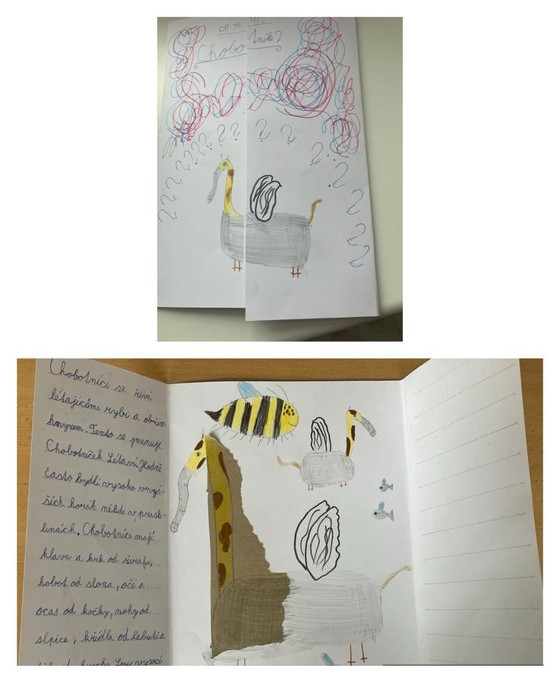 CO JE TO
Chobotník?
Chobotníci se živí
létajícími rybi a obřím
hmyzem. Tento se jmenuje
Chobotníček Létavní
často bydlí vysoko v nejvyš-
ších horách někde v prask-
linách. Chobotníci mají
hlavu a krk od žirafy,
chobot od slona, oči a
ocas od kočky, nohy od
slepice, křídla od labutě a